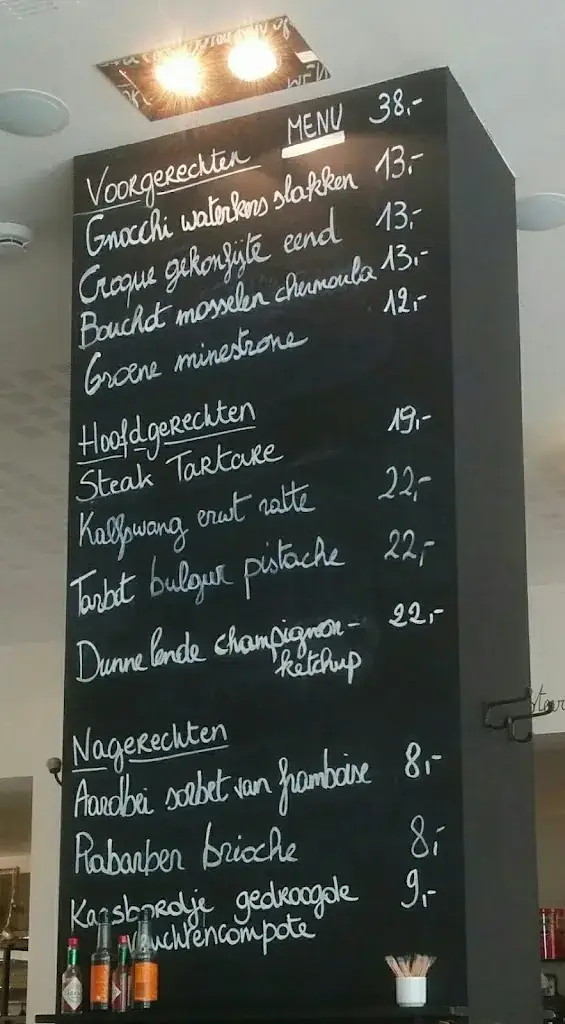 MENU 38,-
Voorgerechten
Gnocchi waterkers slakken 13,-
Croque gekonfijte eend 13,-
Bouchot mosselen chermoula 13,-
Groene minestrone 12,-
Hoofdgerechten
Steak Tartare 19,-
Kalfswang erwt ratte 22,-
Tarbot bulgur pistache 22,-
Dunne lende champignon- 22,-
ketchup
Nagerechten
Aardbei sorbet van framboise 8,-
Rabarber brioche 8,-
Kaasbordje gedroogde 9,-
vruchtencompote